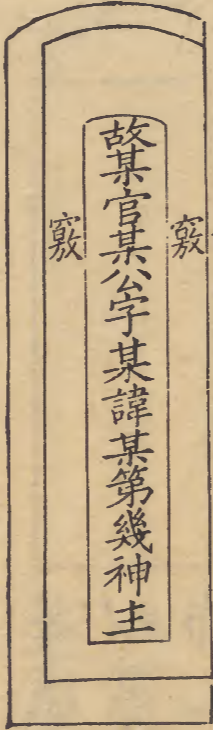 竅
故某官某公字某諱某第幾神主
竅